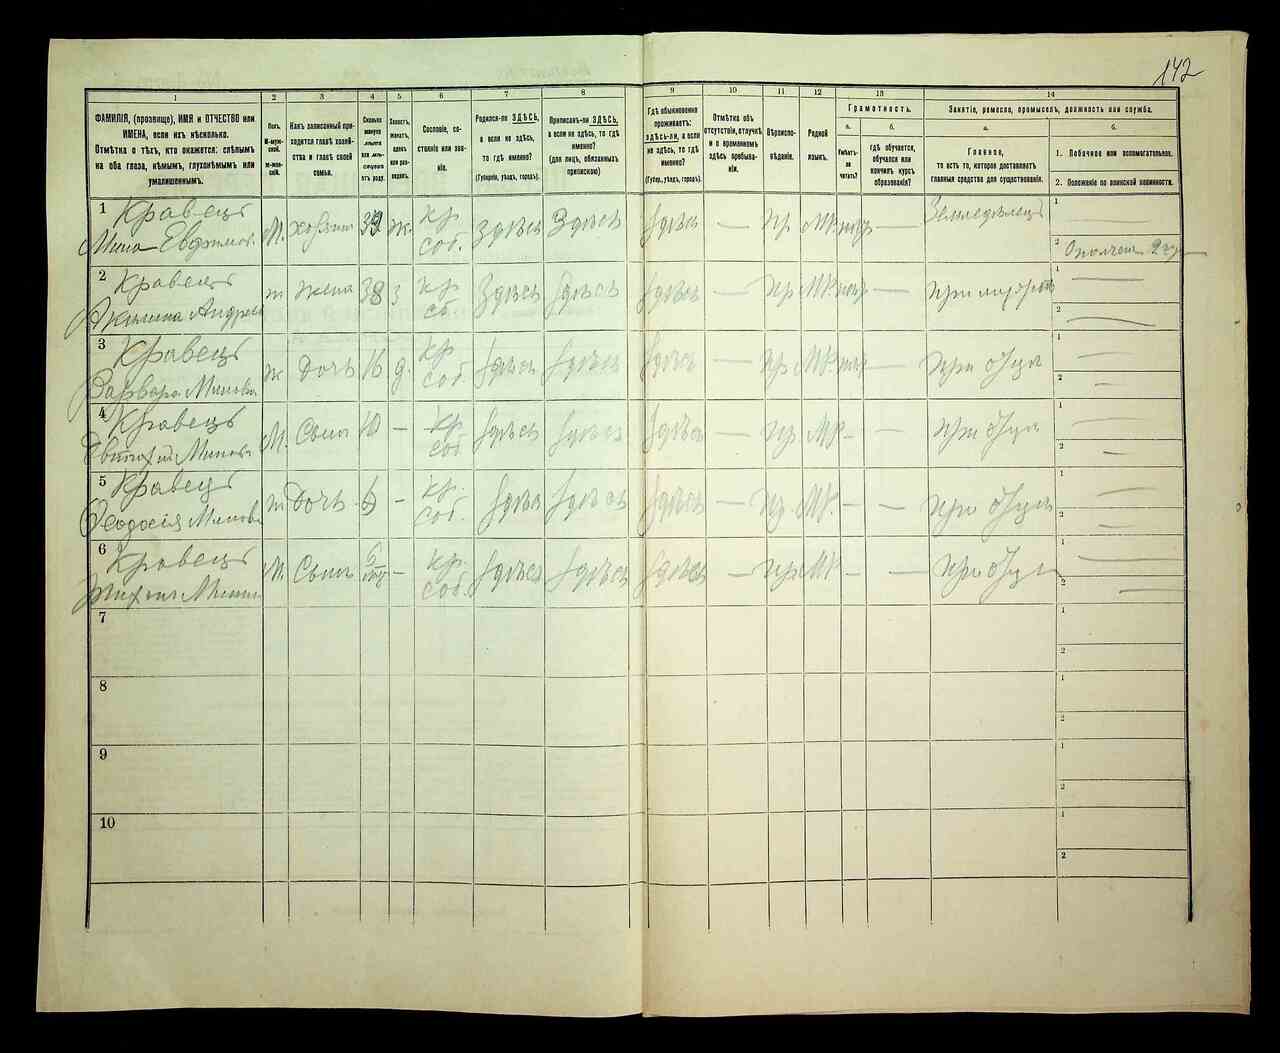 142
1 2 3 4 5 6 7 8 9 10 11 12 13 14
ФАМИЛІЯ, (прозвище), ИМЯ и ОТЧЕСТВО или ИМЕНА, если ихъ нѣсколько.
Отмѣтка о тѣхъ, кто окажется: слѣпымъ на оба глаза, нѣмымъ, глухонѣмымъ или умалишеннымъ.
Полъ.
М-мужской.
Ж-женскій.
Какъ записанный приходится главѣ хозяйства и главѣ своей семьи.
Сколько минуло лѣтъ или мѣсяцевъ отъ роду.
Холостъ, женатъ, вдовъ или разведенъ.
Сословіе, состояніе или званіе.
Родился-ли ЗДѢСЬ, а если не здѣсь, то гдѣ именно?
(Губернія, уѣздъ, городъ).
Приписанъ-ли ЗДѢСЬ, а если не здѣсь, то гдѣ именно?
(для лицъ, обязанныхъ припискою)
Гдѣ обыкновенно проживаетъ: здѣсь-ли, а если не здѣсь, то гдѣ именно?
(Губер., уѣздъ, городъ).
Отмѣтка объ отсутствіи, отлучкѣ и о временномъ здѣсь пребываніи.
Вѣроисповѣданіе.
Родной языкъ.
Грамотность.
а. б.
Умѣетъ-ли читать?
гдѣ обучается, обучался или кончилъ курсъ образованія?
Занятіе, ремесло, промыселъ, должность или служба.
а. б.
Главное,
то есть то, которое доставляетъ главныя средства для существованія.
1. Побочное или вспомогательное.
2. Положеніе по воинской повинности.
1 Кравецъ М. хозяинъ 39 ж. кр соб. Здѣсь Здѣсь здѣсь — пр МР — Земледѣлецъ 1 —
Мина Евфимов. 2 Ополчен 2
2 Кравецъ ж жена 38 з кр соб Здѣсь здѣсь здѣсь — пр МР — при 1 —
Акилина Андреев 2 —
3 Кравецъ ж дочь 16 д. кр соб. здѣсь здѣсь здѣсь — пр МР — при отцѣ 1 —
Варвара Минова 2 —
4 Кравецъ М. Сынъ 10 — кр соб здѣсь здѣсь здѣсь — пр. МР — — при отцѣ 1 —
Минов 2 —
5 Кравецъ ж дочь — кр. соб. здѣсь здѣсь здѣсь — пр. МР. — — при отцѣ 1 —
Ѳеодосія Минова 2 —
6 Кравецъ М. Сынъ — кр. соб. здѣсь здѣсь здѣсь — пр МР — — при отцѣ 1 —
Тихонъ Минов 2 —
7 1
2
8 1
2
9 1
2
10 1
2